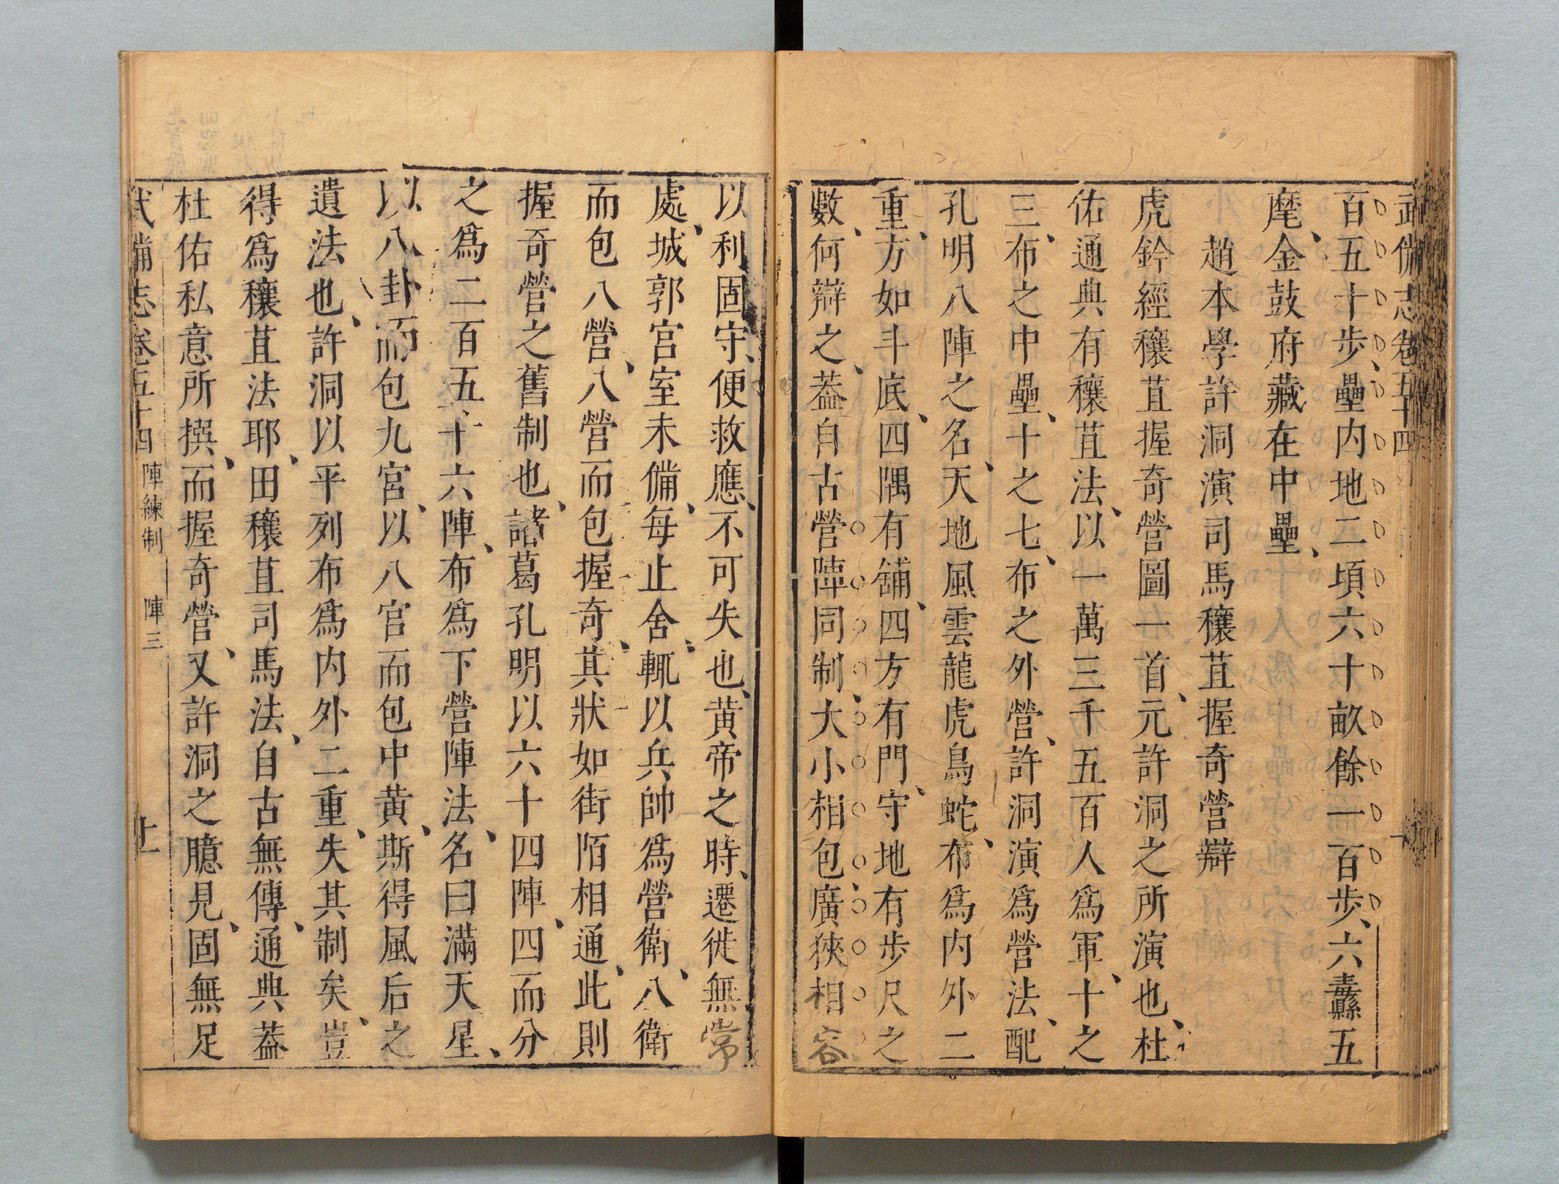 武備志卷五十四
百五十步、壘內地二頃六十畝餘一百步、六纛五
麾、金鼓府藏在中壘、
趙本學許洞演司馬穰苴握奇營辯
虎鈐經穰苴握奇營圖一首、元許洞之所演也、杜
佑通典有穰苴法、以一萬三千五百人爲軍、十之
三、布之中壘、十之七、布之外營、許洞演爲營法、配
孔明八陣之名、天地風雲龍虎鳥蛇、布爲内外二
重、方如斗底、四隅有舖、四方有門、守地有步尺之
數、何辯之、葢自古營陣同制、大小相包、廣狹相容
以利固守、便救應、不可失也、黄帝之時、遷徙無常
處、城郭宮室未備、每止舍、輒以兵帥爲營衛、八衛
而包八營、八營而包握奇、其狀如街陌相通、此則
握奇營之舊制也、諸葛孔明以六十四陣、四而分
之爲二百五十六陣、布爲下營陣法、名曰滿天星、
以八卦而包九宮、以八官而包中黄、斯得風后之
遺法也、許洞以平列布爲内外二重、失其制矣、豈
得爲穰苴法耶、田穰苴司馬法、自古無傳、通典葢
杜佑私意所撰、而握奇營、又許洞之臆見、固無足
武備志卷五十四 陣練制 陣三 十一